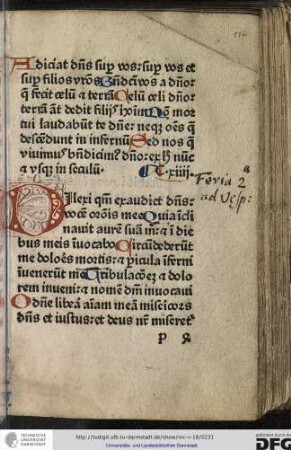 Adiciat dñs sup vos: sup vos et
sup filios vr̃os Bñdcti vos a dño:
q̃ fecit celũ ⁊ terrã Celũ celi dño:
terrã ãt dedit filijs hoĩm Nõ mor
tui laudabũt te dñe: neq̃ oẽs q̃
descẽdunt in infernũ Sed nos q̃
viuimus bñdicim9 dño: ex h̃ nũc
⁊ vsq̃ in seculũ
Feria 2a
ad Vesp:
Dilexi qm̃ exaudiet dñs:
vocẽ orõis mee Quia ĩcli
nauit aurẽ suã m: ⁊ ĩ die
bus meis ĩuocabo Circũdederũt
me dolões mortis: ⁊ pericula ĩferni
ĩuenerũt me Tribulacõeʒ ⁊ dolo
rem inueni: ⁊ nomẽ dm̃ inuocaui
O dñe liberã aĩam meã misericors
dñs et iustus: et deus nr̃ miseret
TECHNISCHE UNIVERSITÄT DARMSTADT
http://tudigit.ulb.tu-darmstadt.de/show/inc-i-18/0231
Universitäts- und Landesbibliothek Darmstadt
DFG